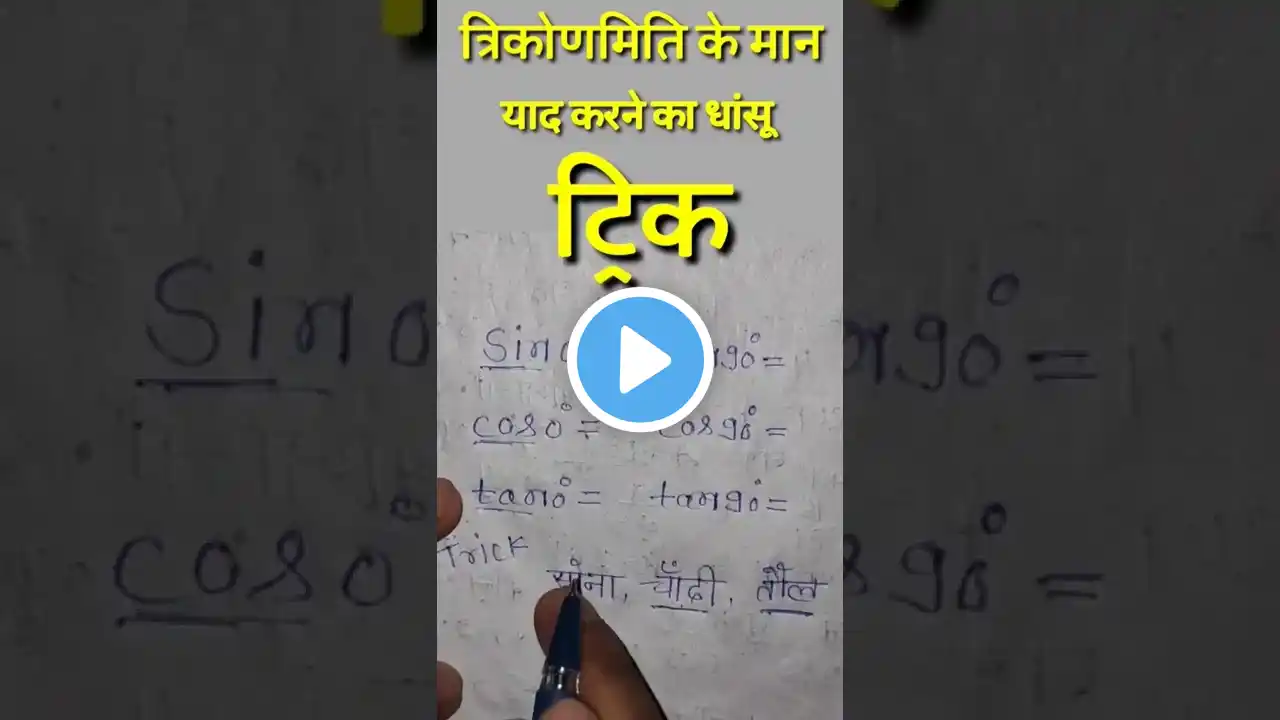 त्रिकोणमिति के मान
याद करने का धांसू
ट्रिक
Sin 90° =
cos0° = cos90° =
tan0° = tan90° =
Trick
सोना, चाँदी, तौल